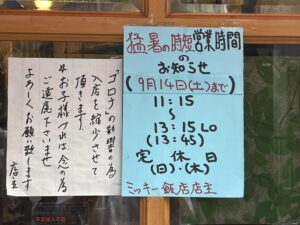 猛暑の時短営業時間
の
お知らせ
(9月14日(土)まで)
11:15
〜
13:15 LO
(13:45)
定休日
(日)・(木)
ミッキー飯店店主
"コロナ"の影響の為
入店を縮少させて
頂きます
*お子様づれは、念の為
ご遠慮下さいませ
よろしくお願い致します
店主